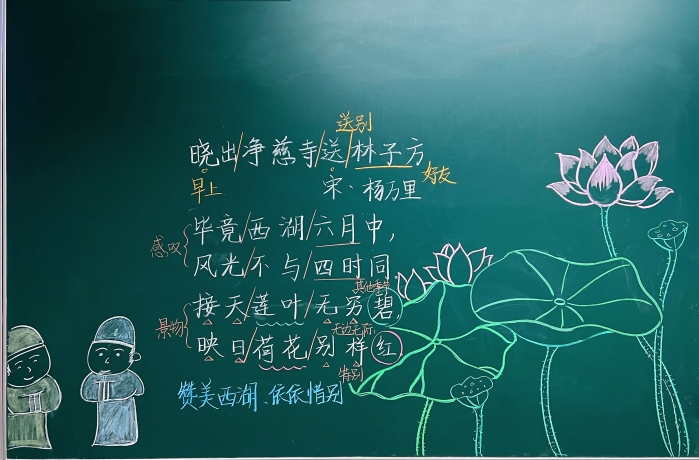 送别
晓出/净慈寺/送/林子方
早上
好友
宋·杨万里
感叹
毕竟/西湖/六月中,
风光/不与/四时同.
其他季节
景物
接天/莲叶/无穷/碧,
无边无际
映日/荷花/别样/红.
特别
赞美西湖、依依惜别